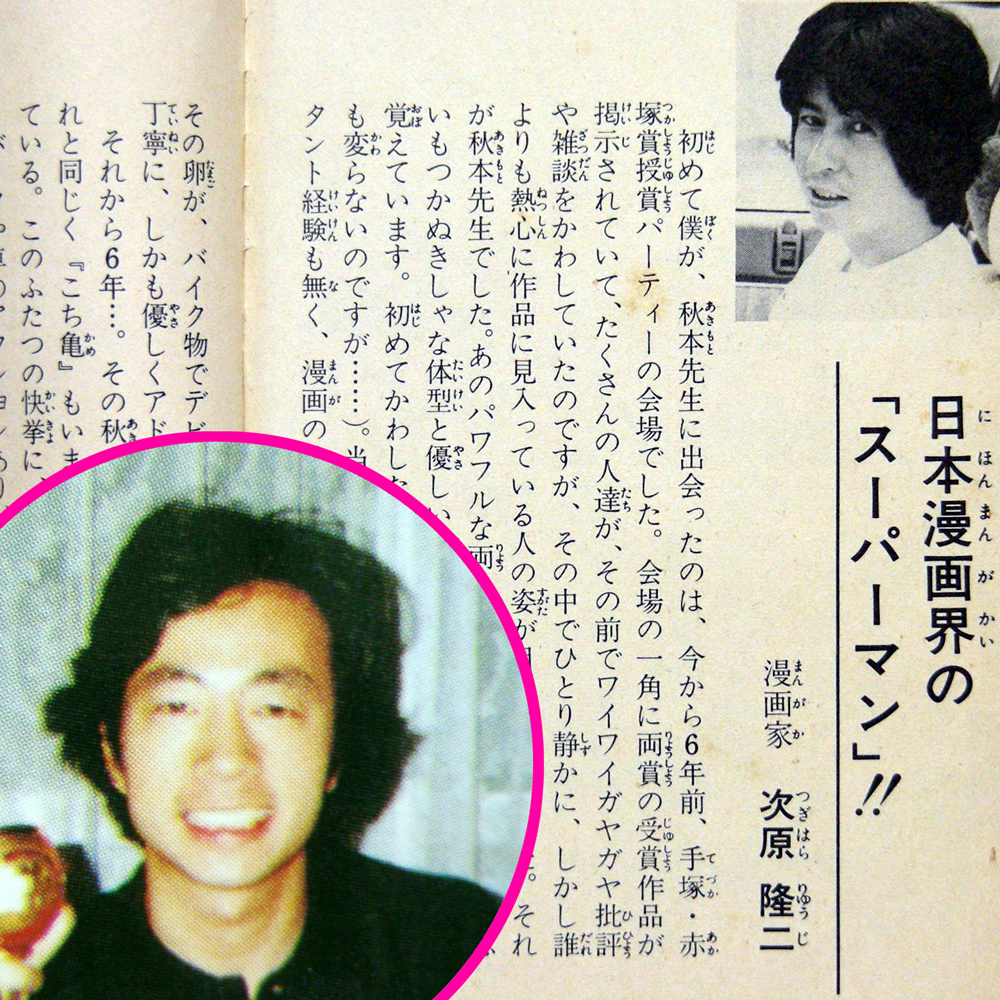 日本漫画界の
「スーパーマン」!!
漫画家 次原隆二
初めて僕が、秋本先生に出会ったのは、今から6年前、手塚・赤
塚賞授賞パーティーの会場でした。会場の一角に両賞の受賞作品が
掲示されていて、たくさんの人達が、その前でワイワイガヤガヤ批評
や雑談をかわしていたのですが、その中でひとり静かに、しかし誰
よりも熱心に作品に見入っている人の姿が 。それ
が秋本先生でした。あのパワフルな両
いもつかぬきしゃな体型と優し
覚えています。初めてかわした
も変らないのですが……)。当
タント経験も無く、漫画の
その卵が、バイク物でデビ
丁寧に、しかも優しくアド
それから6年…。その秋
れと同じく『こち亀』もいま
ている。このふたつの快挙に